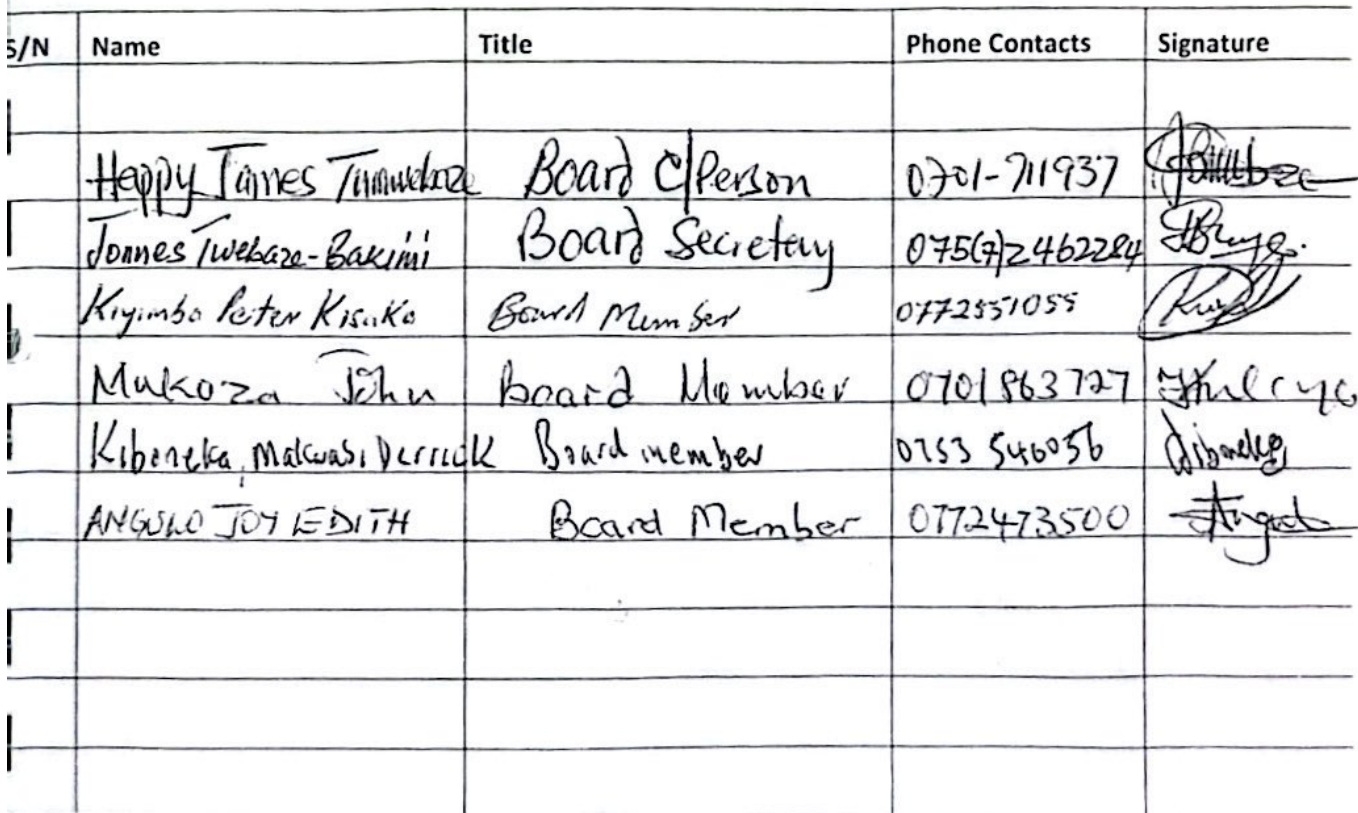 S/N Name Title Phone Contacts Signature
Happy James Tumwebaze Board C/Person 0701-711937
James Twebaze-Bakimi Board Secretary 075(7)2462284
Kiyimba Peter Kisaka Board Member 0772551055
Mukoza John Board Member 0701863727
Kiboneka Makwasi Derrick Board member 0753 546056
ANGULO JOY EDITH Board Member 0772473500